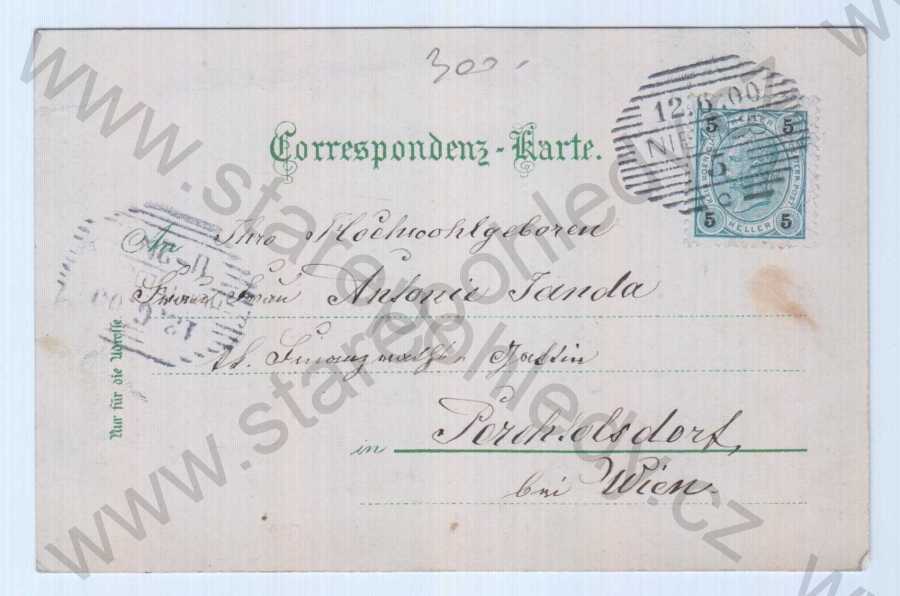 300.-
12.6.00
NIE
5
5 5
5 5
HELLER
Correspondenz-Karte.
An Ihro Hochwohlgeboren
Frau Antonie Janda
k. k. Finanzraths Gattin
in Perchtolsdorf,
bei Wien.
Nur für die Adresse
12.6
www.starepohledy.cz
www.starepohledy.cz